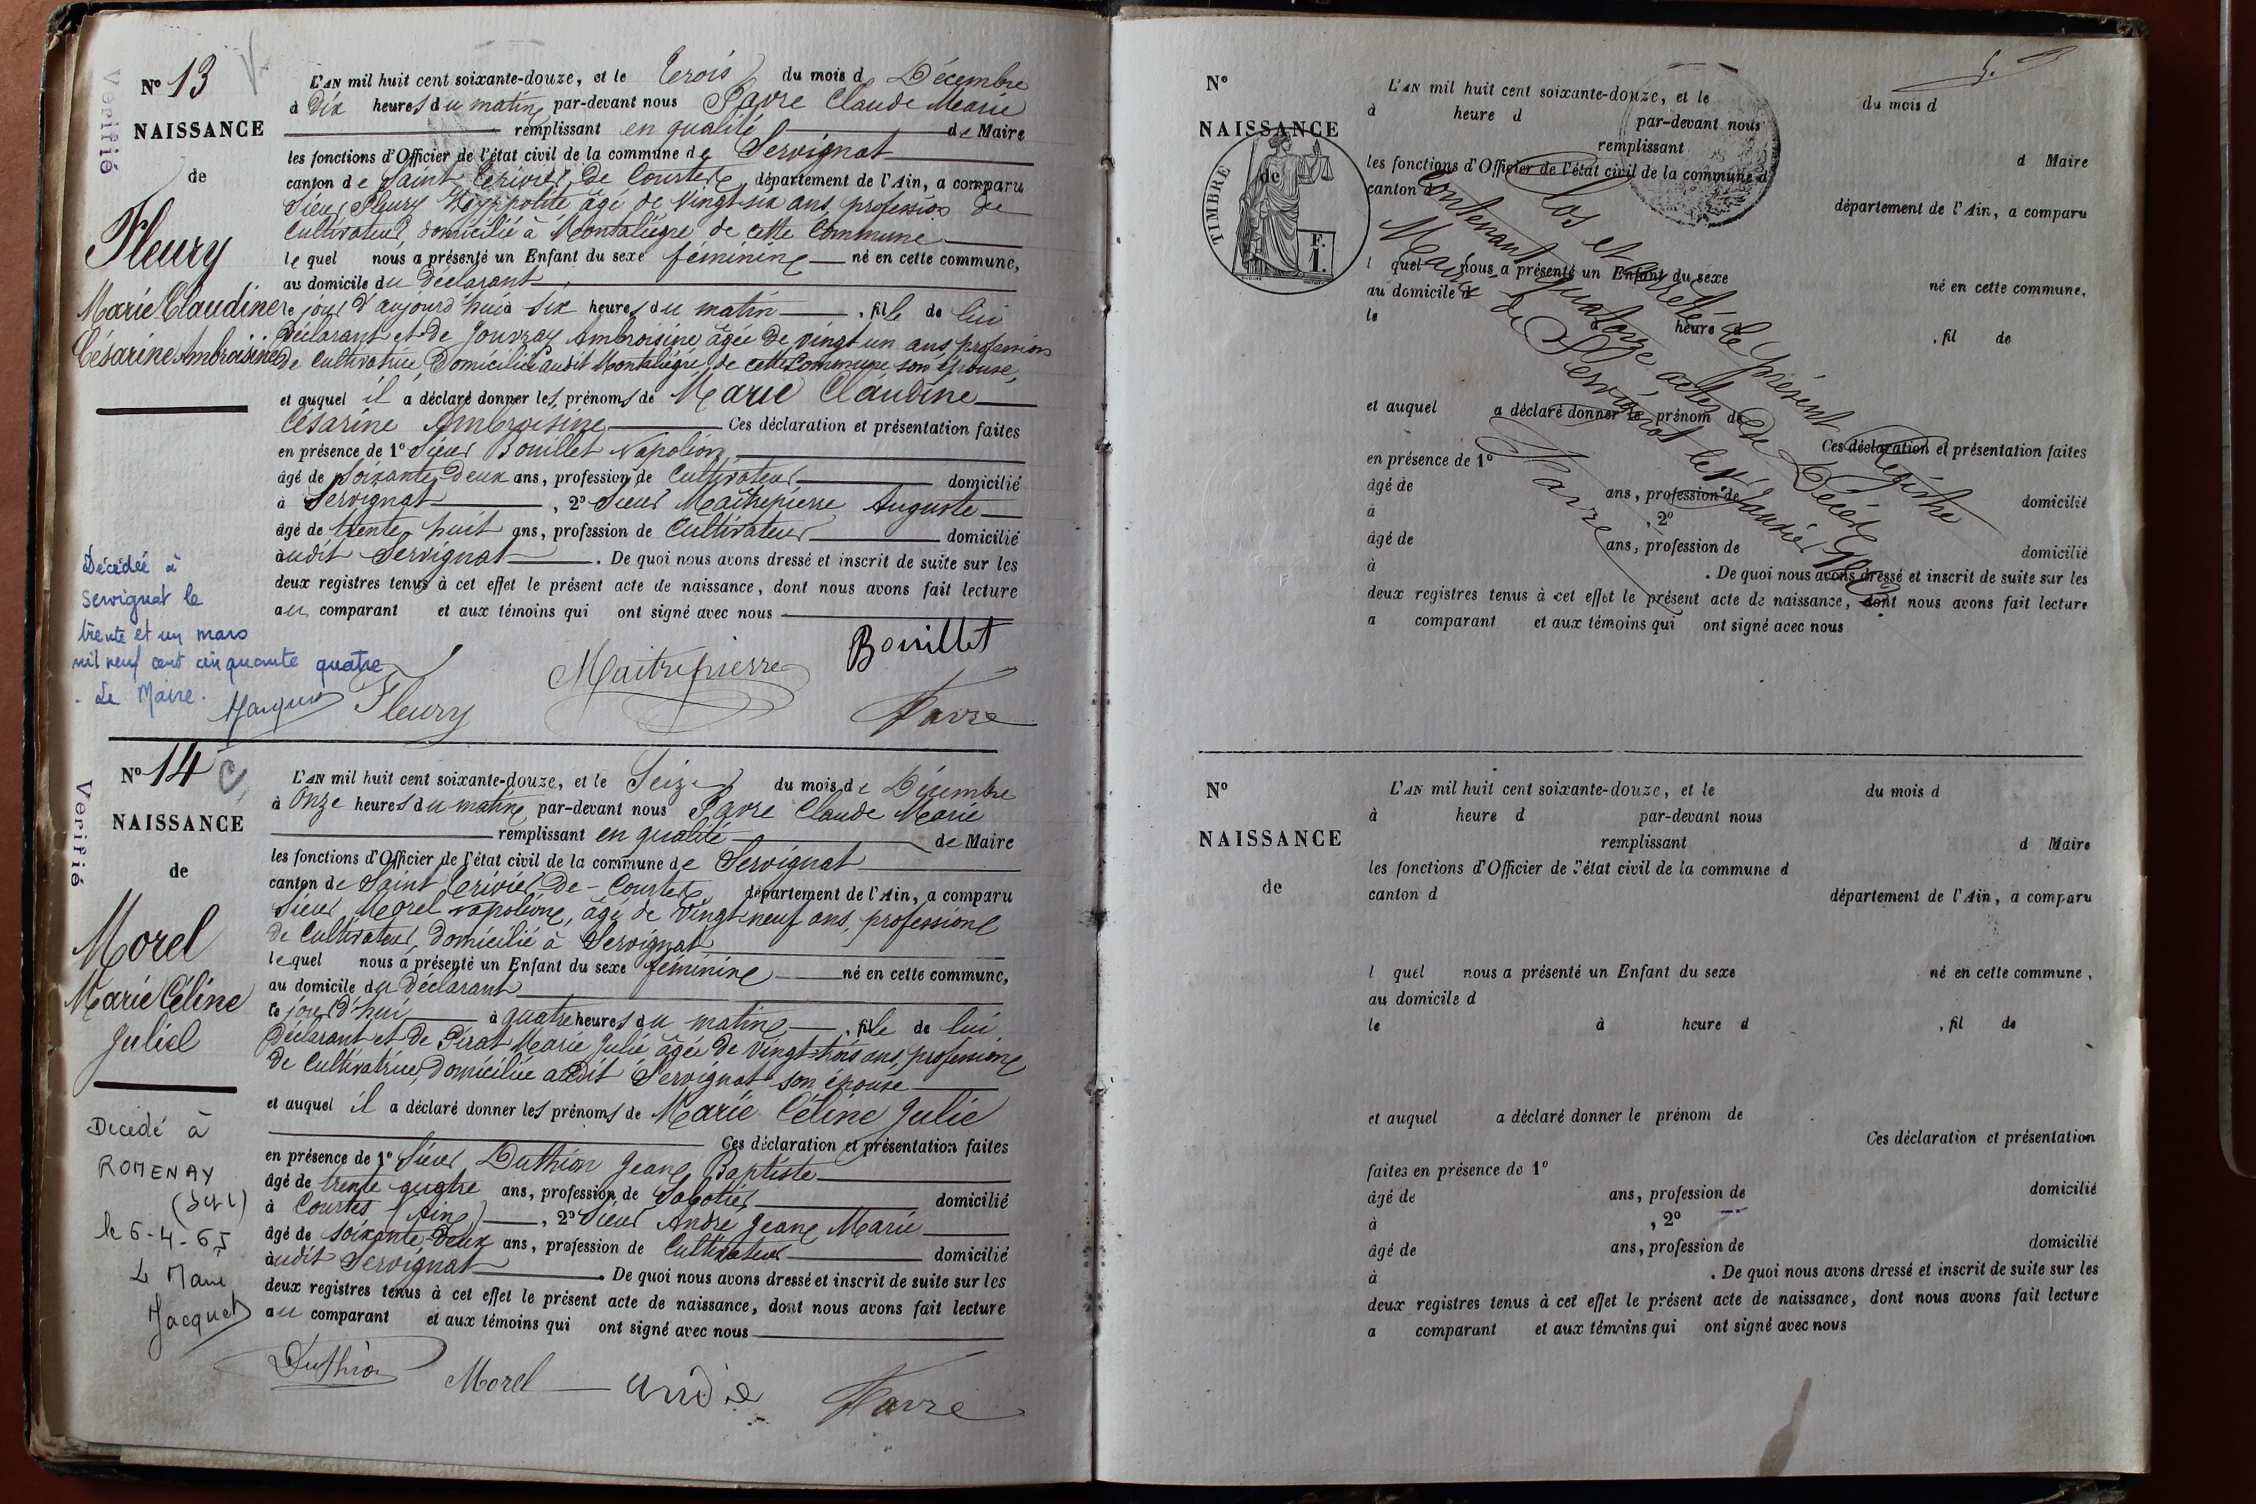 Nº 13
Verifié
NAISSANCE
de
Fleury
Marie Claudine
Césarine Ambroisine
L'AN mil huit cent soixante-douze, et le Trois du mois d Décembre
à Dix heures du matin par-devant nous Favre Claude Marie
remplissant en qualité de Maire
les fonctions d'Officier de l'état civil de la commune de Servignat
canton de Saint Trivier De Courtes, département de l'Ain, a comparu
Sieur Fleury Hyppolite âgé de Vingt-six ans, profession de
Cultivateur, domicilié à Montaliègre de cette Commune
lequel nous a présenté un Enfant du sexe féminine né en cette commune,
au domicile du Déclarant
le jour d'aujourd'hui à six heures du matin, fille de lui
Déclarant et de Jouvray Ambroisine âgée de vingt un ans, profession
de Cultivatrice, Domiciliée audit Montaliègre, de cette Commune son épouse,
et auquel il a déclaré donner les prénoms de Marie Claudine
Césarine Ambroisine Ces déclaration et présentation faites
en présence de 1º Sieur Bouillet Napoléon
âgé de Soixante Deux ans, profession de Cultivateur domicilié
à Servignat, 2º Sieur Maîtrepierre Auguste
âgé de trente huit ans, profession de Cultivateur domicilié
àudit Servignat. De quoi nous avons dressé et inscrit de suite sur les
deux registres tenus à cet effet le présent acte de naissance, dont nous avons fait lecture
au comparant et aux témoins qui ont signé avec nous
Décédée à
Servignat le
trente et un mars
mil neuf cent cinquante quatre
Le Maire.
Fleury Maitrepierre Bouillet
Favre
Nº 14
Verifié
NAISSANCE
de
Morel
Marie Céline
Julie
L'AN mil huit cent soixante-douze, et le Seize du mois de Décembre
à Onze heures du matin par-devant nous Favre Claude Marie
remplissant en qualité de Maire
les fonctions d'Officier de l'état civil de la commune de Servignat
canton de Saint Trivier De-Courtes, département de l'Ain, a comparu
Sieur Morel napoléon, âgé de Vingt-neuf ans, profession
de Cultivateur, domicilié à Servignat
lequel nous a présenté un Enfant du sexe féminine né en cette commune,
au domicile du Déclarant
le jour d'hui à quatre heures du matin, fille de lui
Déclarant et de Pirat Marie Julie âgée de Vingt-trois ans, profession
de Cultivatrice, Domiciliée audit Servignat son épouse
et auquel il a déclaré donner les prénoms de Marie Céline Julie
Ces déclaration et présentation faites
en présence de 1º Sieur Duthion Jean Baptiste
âgé de trente quatre ans, profession de Sabotier domicilié
à Courtes (Ain), 2º Sieur André Jean Marie
âgé de soixante Deux ans, profession de Cultivateur domicilié
àudit Servignat. De quoi nous avons dressé et inscrit de suite sur les
deux registres tenus à cet effet le présent acte de naissance, dont nous avons fait lecture
au comparant et aux témoins qui ont signé avec nous
Décédé à
ROMENAY
(S et L)
le 6-4-65
Le Maire
Jacquet
Duthion Morel André Favre
5.
Nº
NAISSANCE
de
TIMBRE
F.
1.
L'AN mil huit cent soixante-douze, et le du mois d
à heure d par-devant nous
remplissant d Maire
les fonctions d'Officier de l'état civil de la commune d
canton d département de l'Ain, a comparu
l quel nous a présenté un Enfant du sexe né en cette commune,
au domicile d
le à heure d, fil de
et auquel a déclaré donner le prénom de
Ces déclaration et présentation faites
en présence de 1º
âgé de ans, profession de domicilié
à, 2º
âgé de ans, profession de domicilié
à. De quoi nous avons dressé et inscrit de suite sur les
deux registres tenus à cet effet le présent acte de naissance, dont nous avons fait lecture
a comparant et aux témoins qui ont signé avec nous
Clos et arrêté le présent Registre
contenant quatorze actes
Maire de Servignat le 1er Janvier
Favre
Nº
NAISSANCE
de
L'AN mil huit cent soixante-douze, et le du mois d
à heure d par-devant nous
remplissant d Maire
les fonctions d'Officier de l'état civil de la commune d
canton d département de l'Ain, a comparu
l quel nous a présenté un Enfant du sexe né en cette commune,
au domicile d
le à heure d, fil de
et auquel a déclaré donner le prénom de
Ces déclaration et présentation
faites en présence de 1º
âgé de ans, profession de domicilié
à, 2º
âgé de ans, profession de domicilié
à. De quoi nous avons dressé et inscrit de suite sur les
deux registres tenus à cet effet le présent acte de naissance, dont nous avons fait lecture
a comparant et aux témoins qui ont signé avec nous